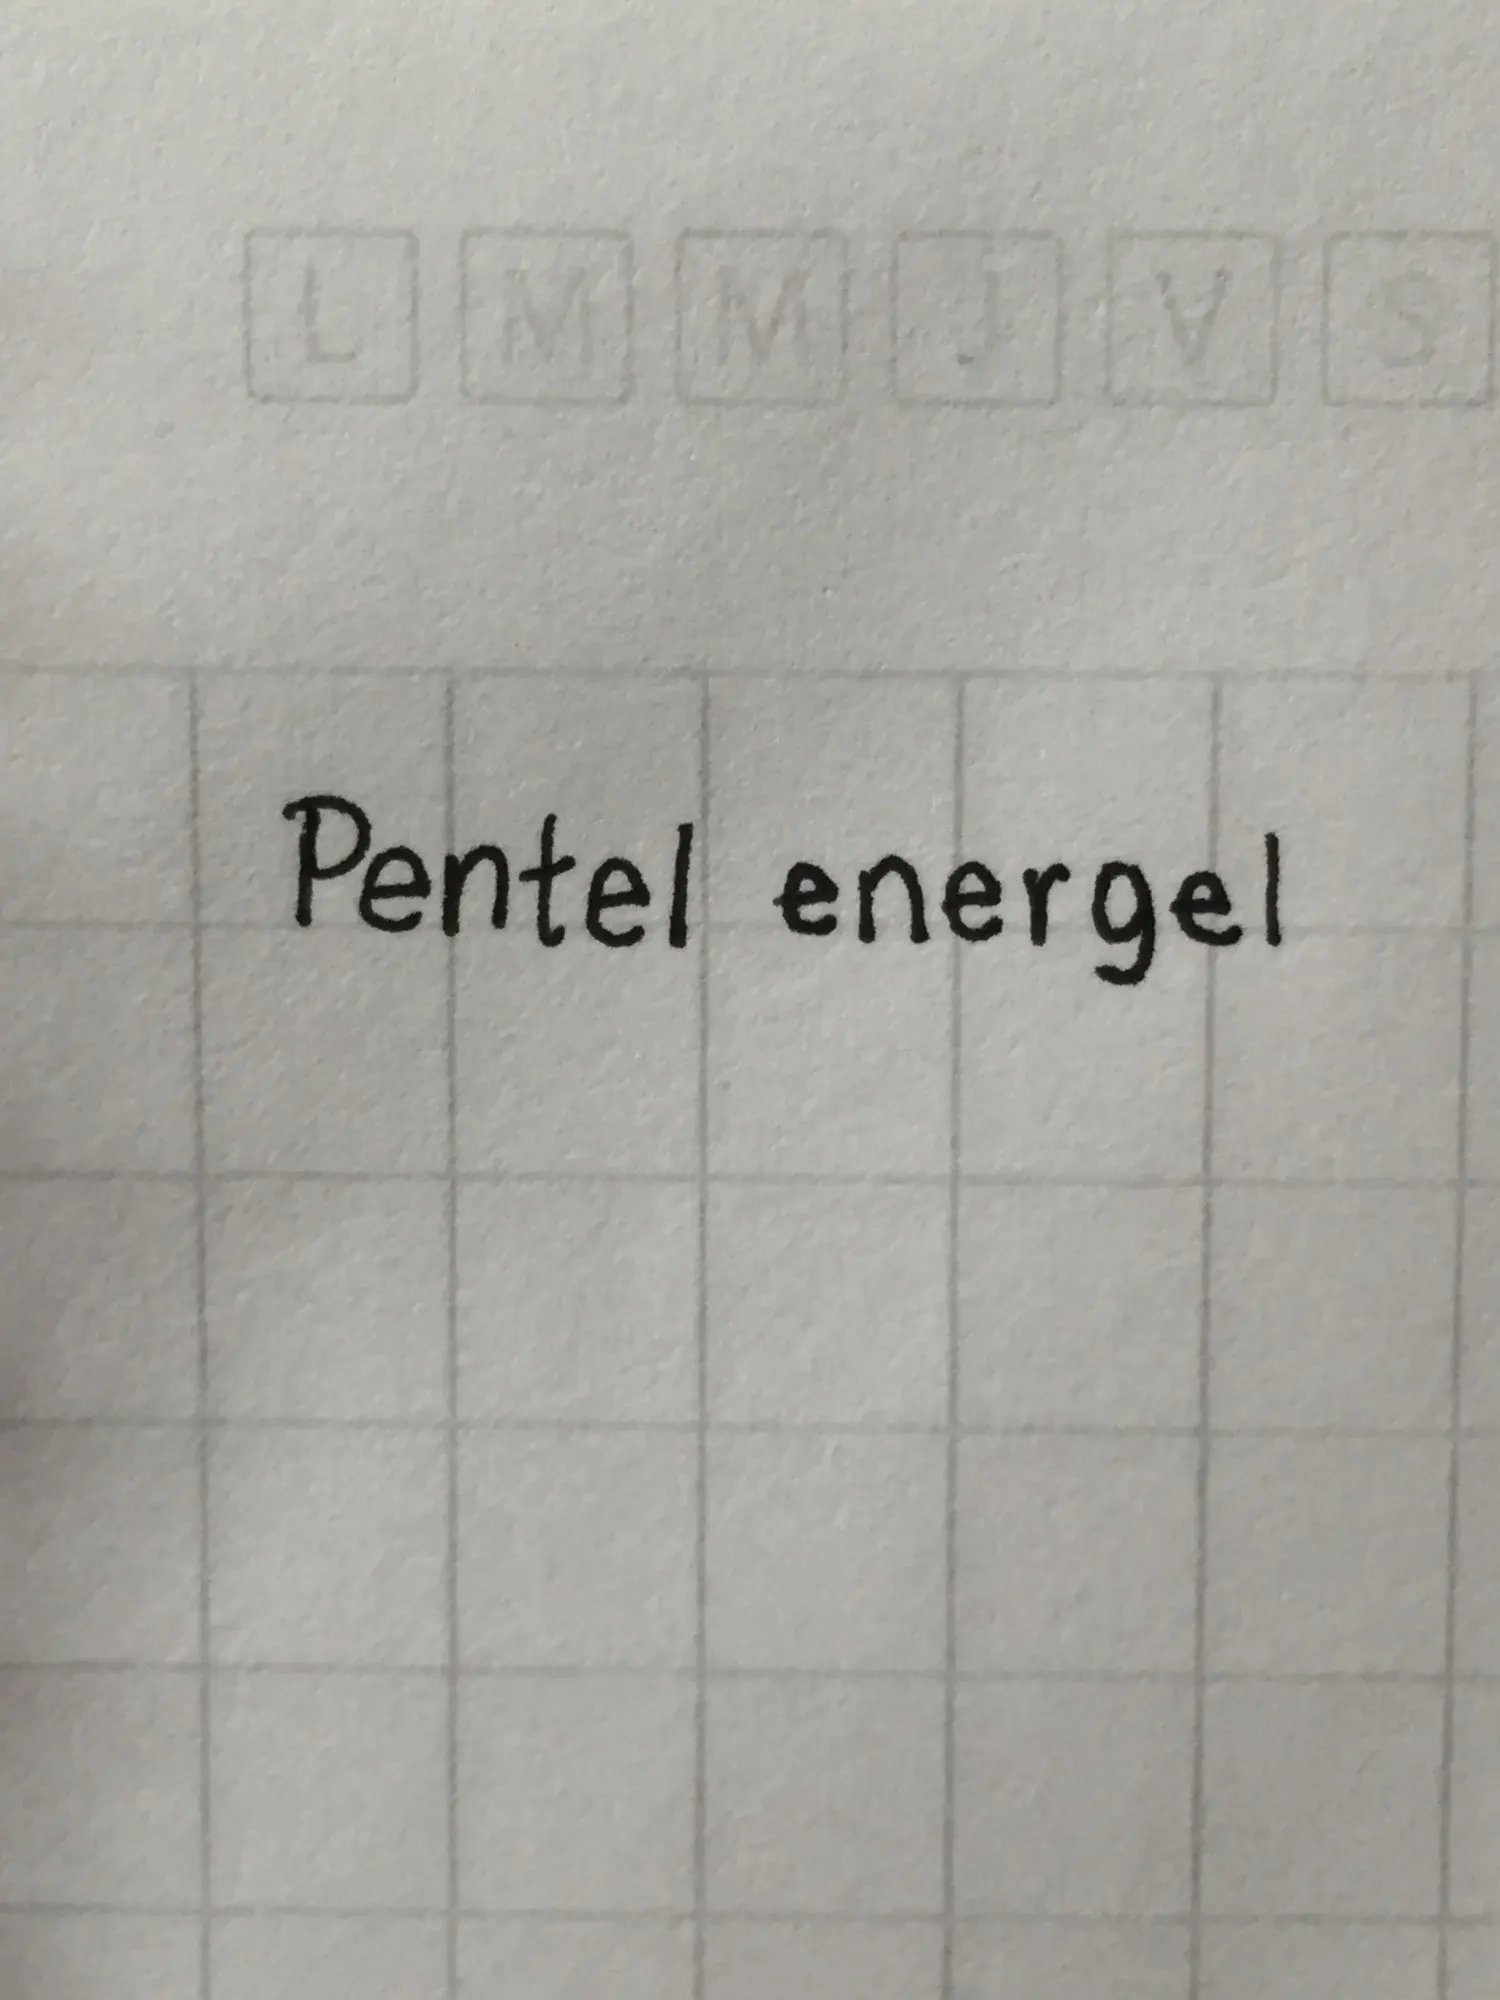 L M M J V S
Pentel energel